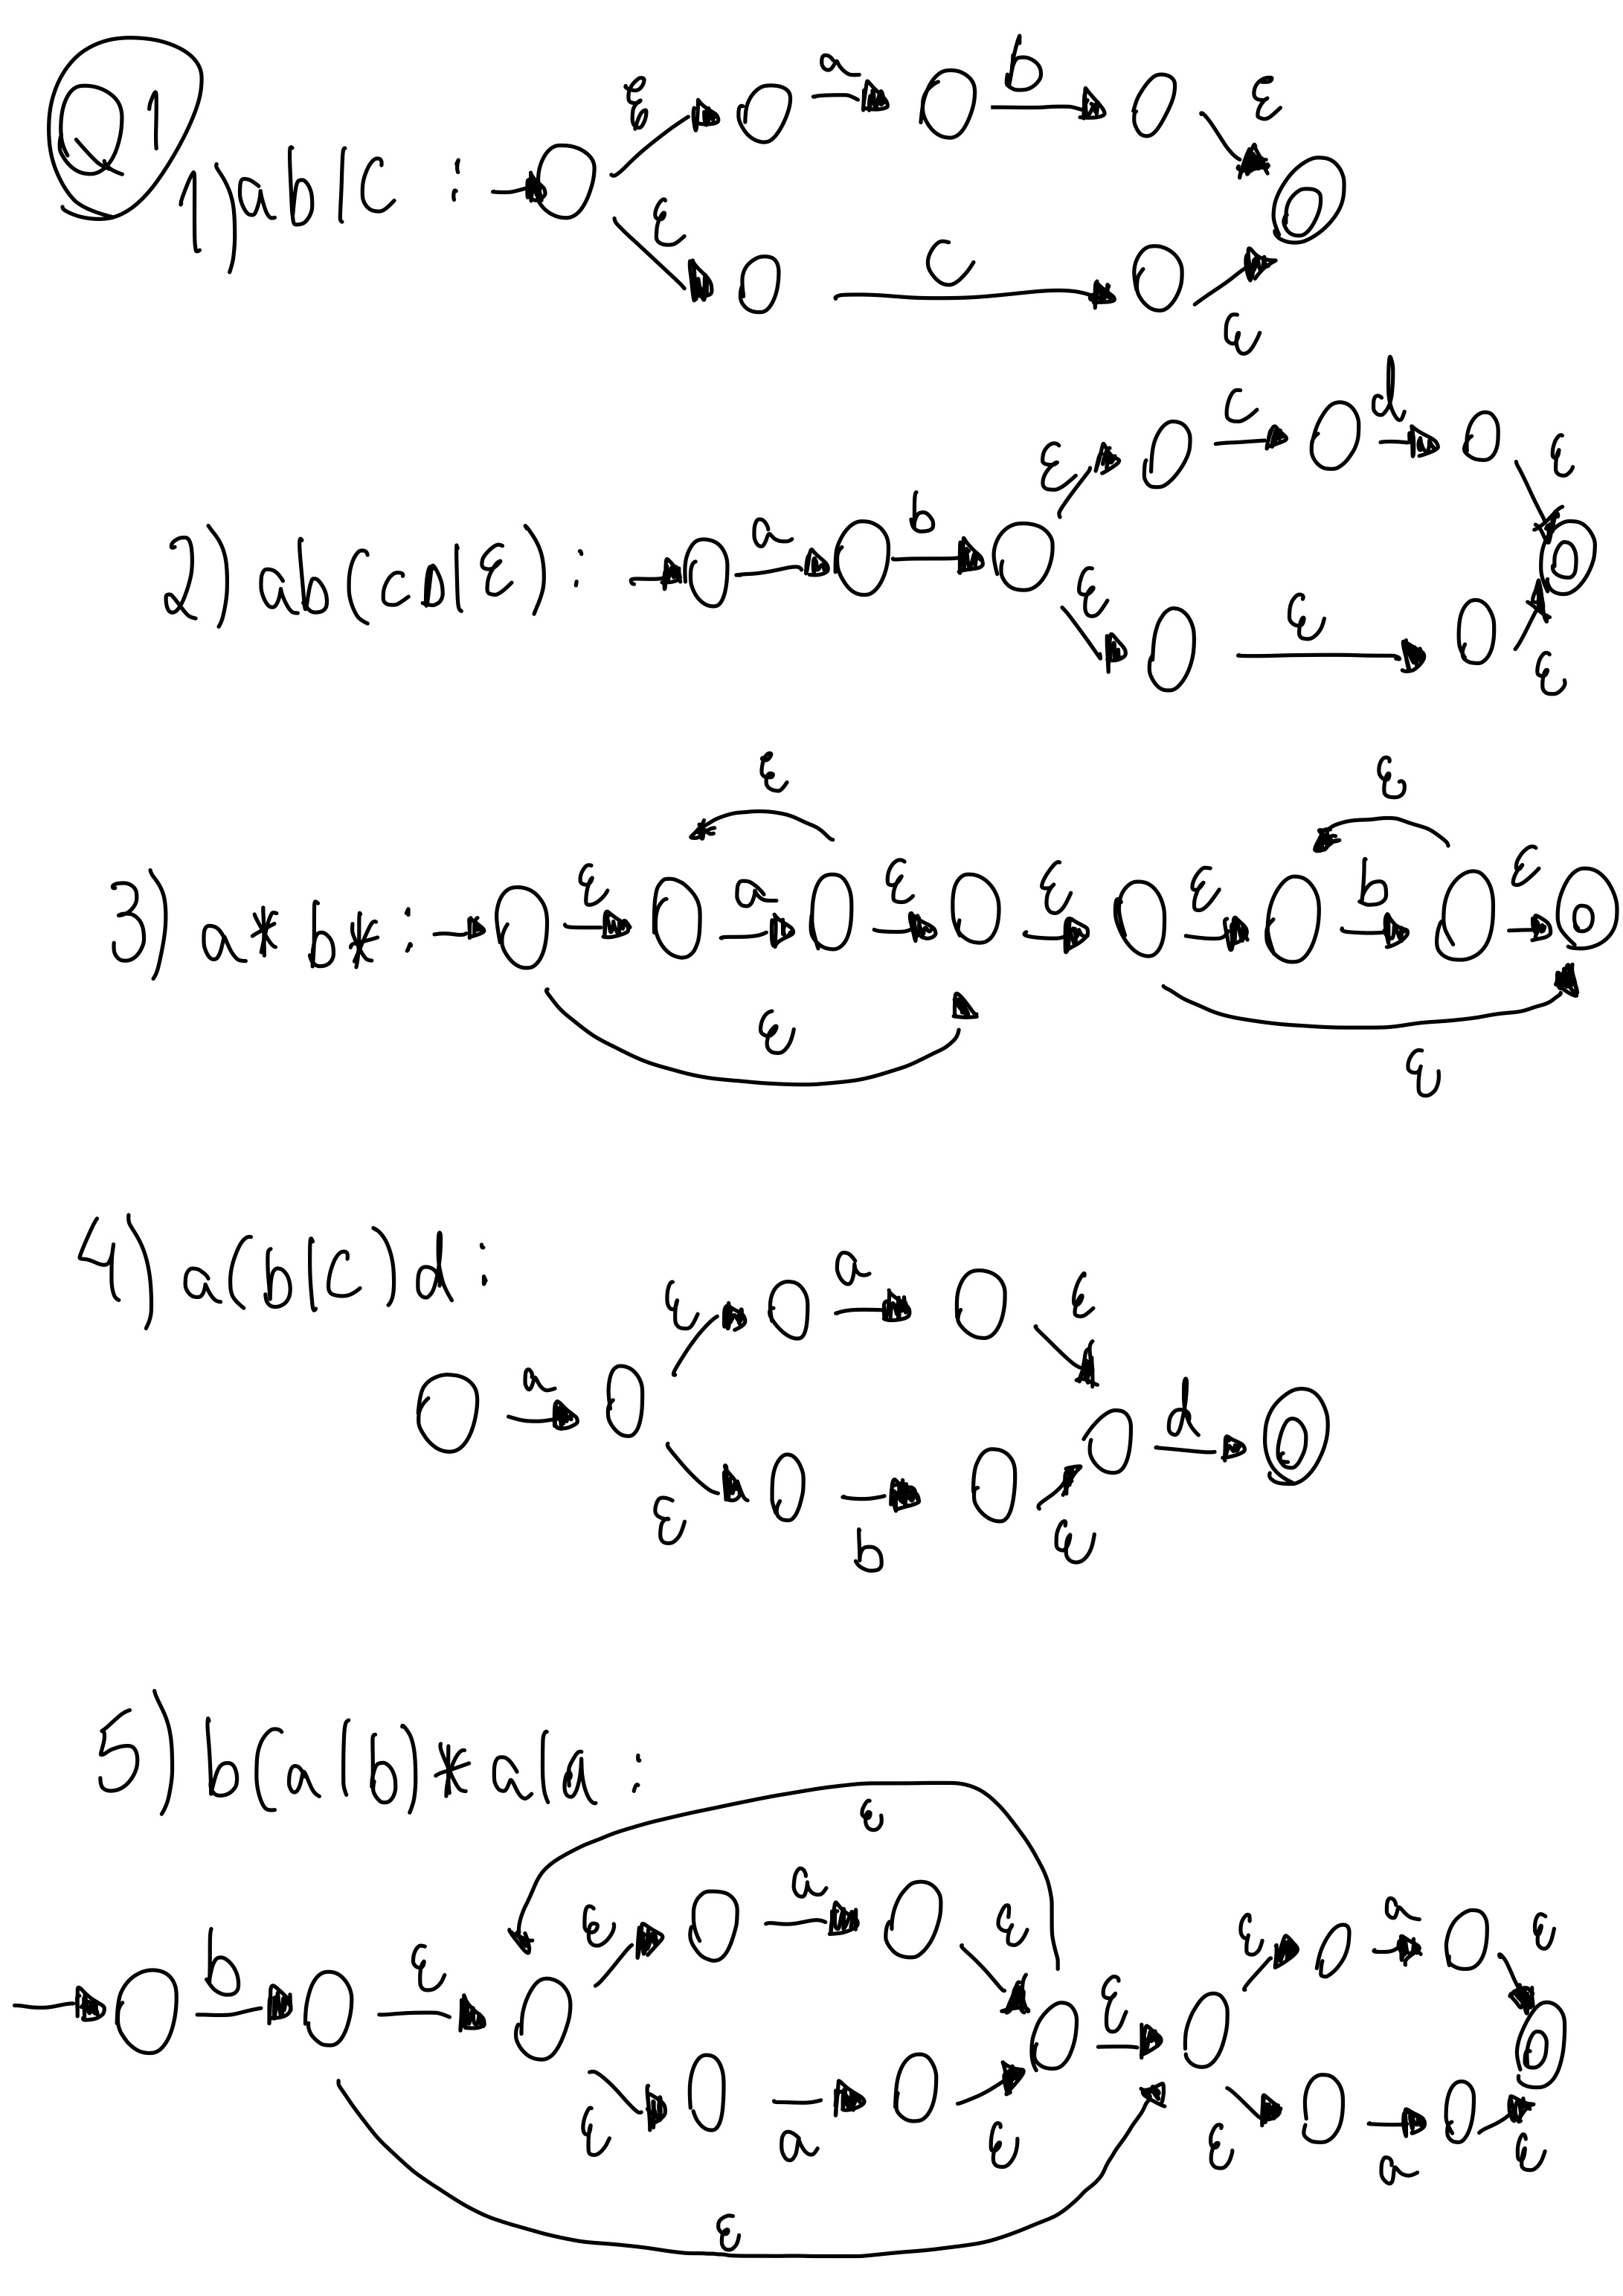 Q1
1) ab|c :
ε a b ε
ε c ε
2) ab(cd|ε) :
a b ε c d ε
ε ε ε
3) a*b* :
ε ε
ε a ε ε ε b ε
ε ε
4) a(b|c)d :
ε a ε
a d
ε b ε
5) b(a|b)*a|a :
ε
ε a ε ε a ε
b ε ε
ε a ε ε a ε
ε